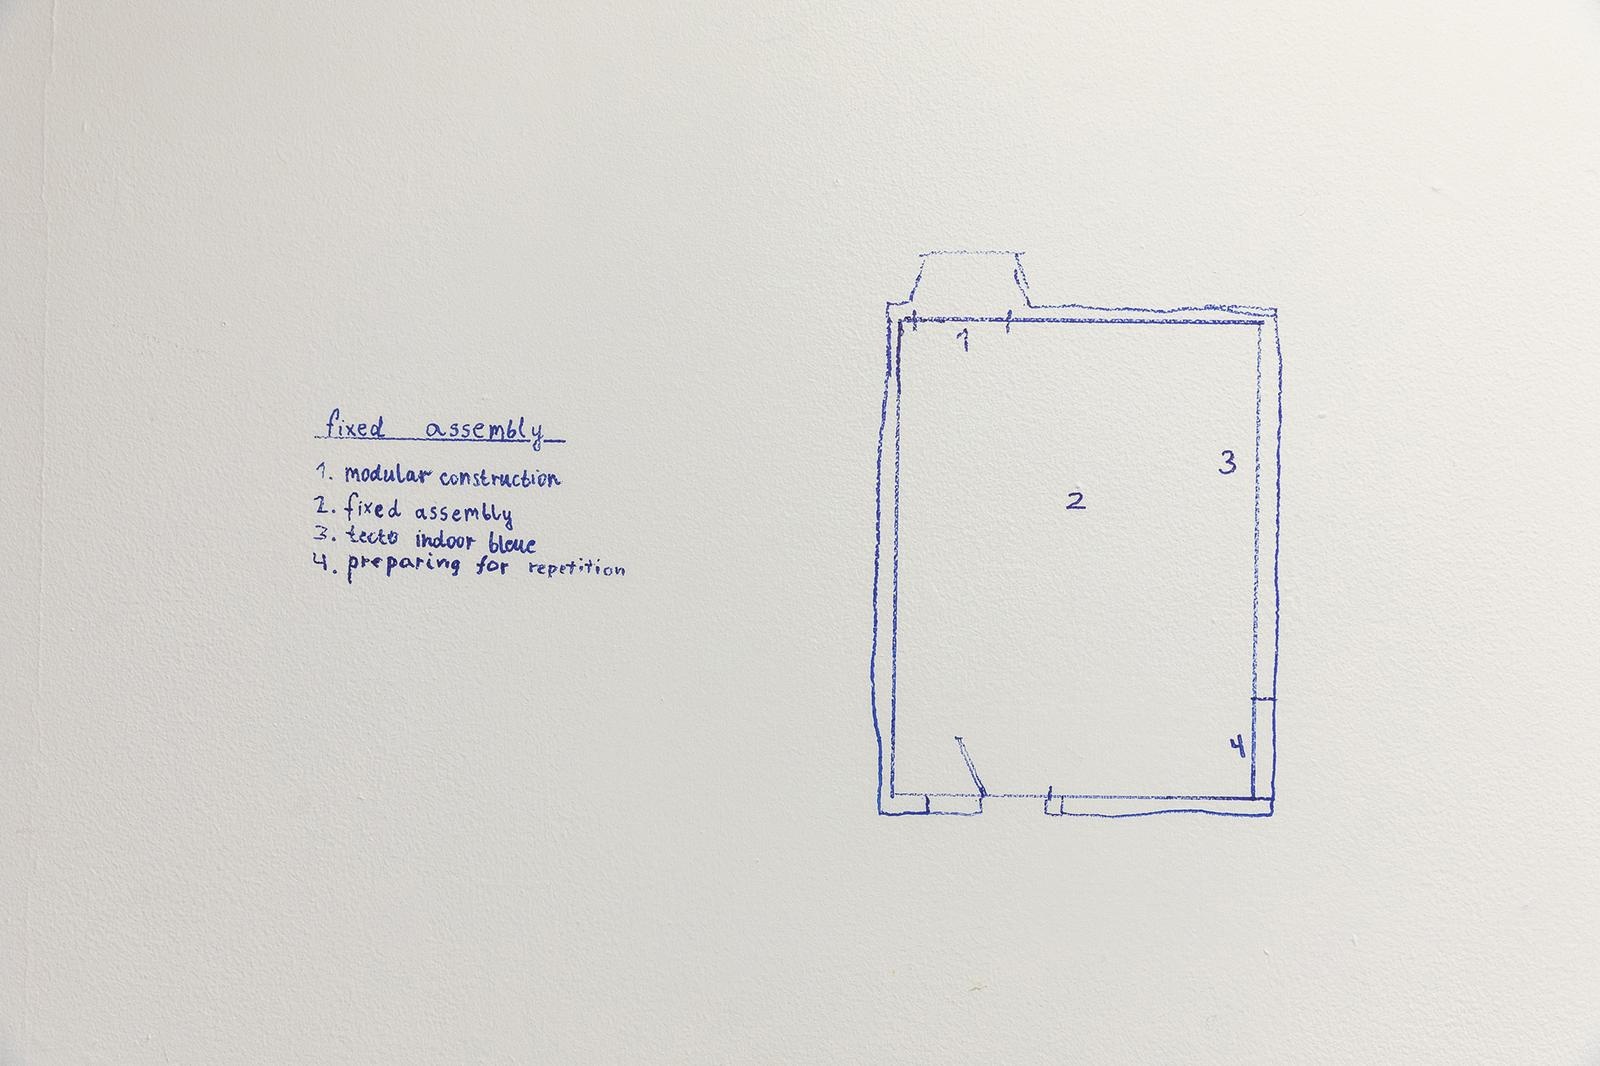 fixed assembly
1. modular construction
2. fixed assembly
3. tecto indoor bleue
4. preparing for repetition
1
3
2
4